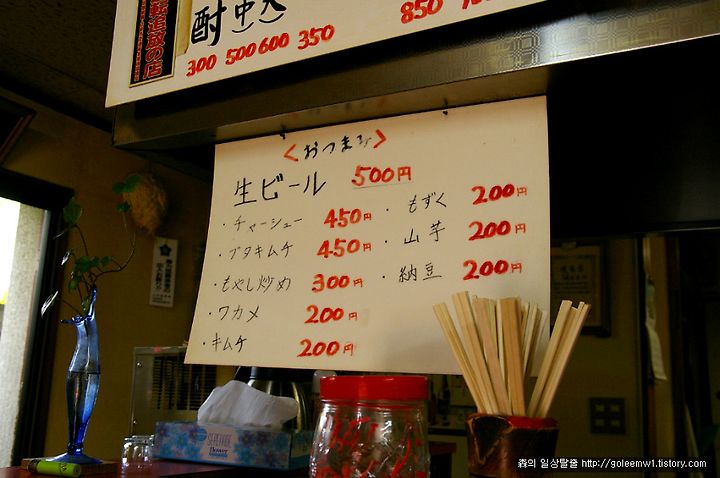 追放の店
酎 中 大
300 500 600 350
850
<おつまみ>
生ビール 500円
・チャーシュー 450円
・ブタキムチ 450円
・もやし炒め 300円
・ワカメ 200円
・キムチ 200円
・もずく 200円
・山芋 200円
・納豆 200円
Flower
森의 일상탈출 http://goleemw1.tistory.com